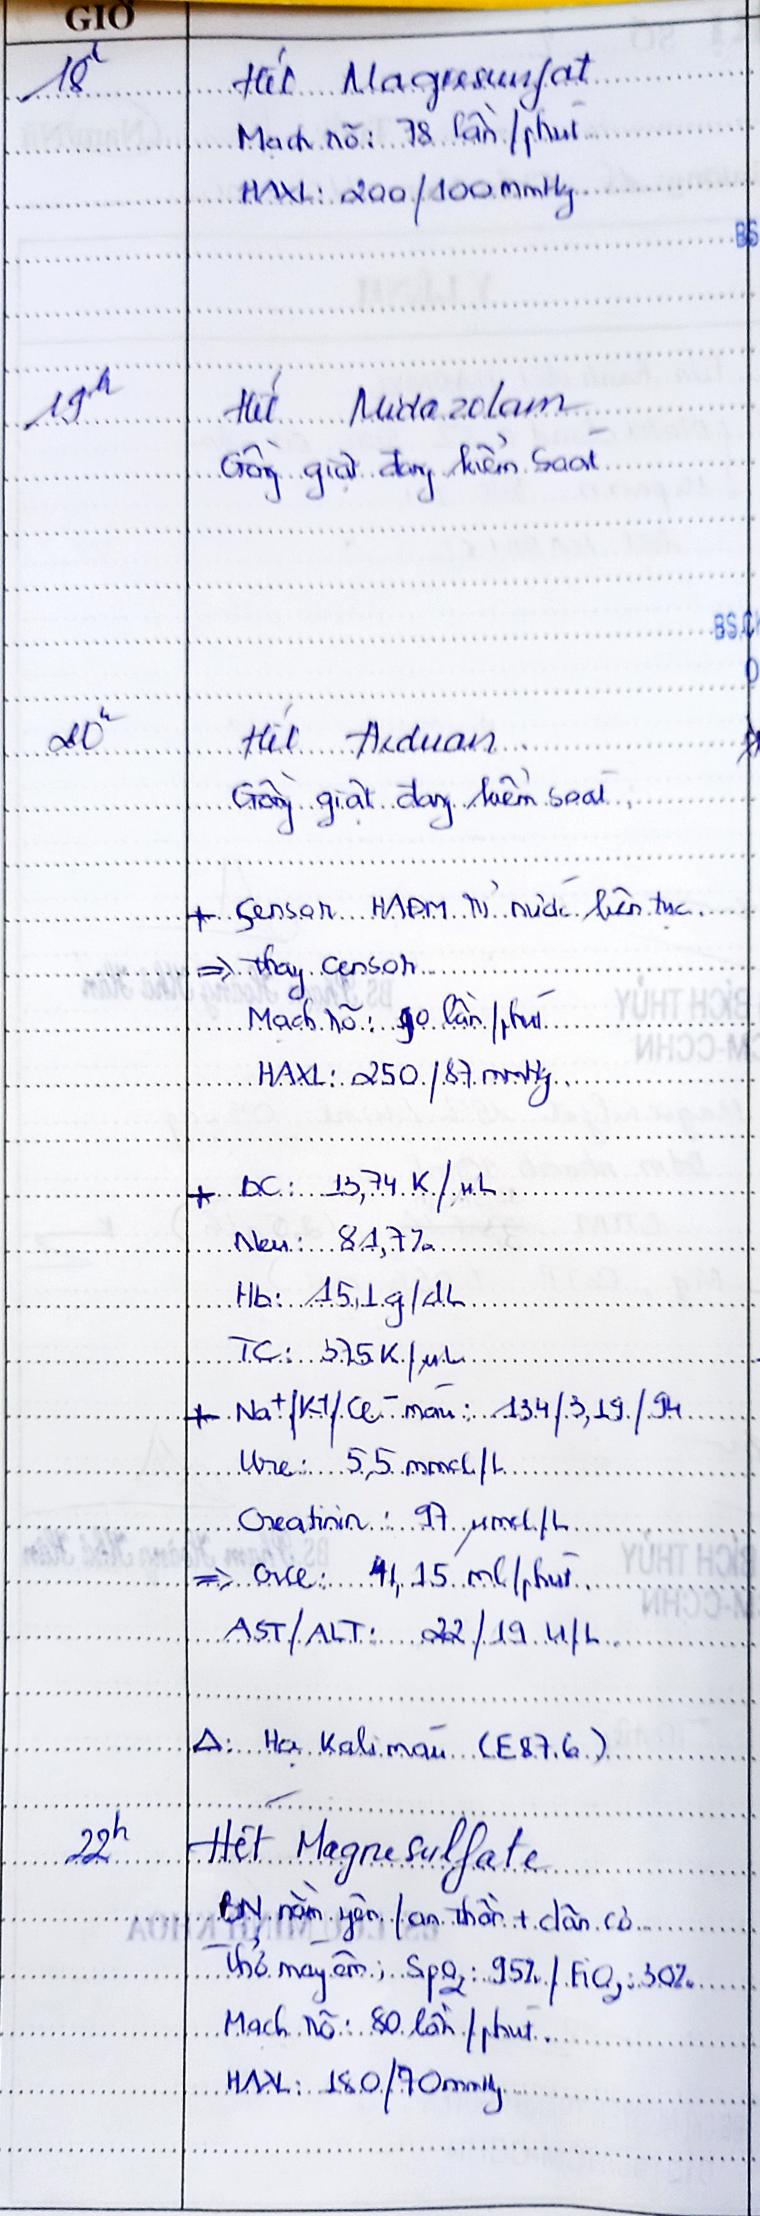 GIỜ
18h Hết Magnesunfat
Mạch rõ: 78 lần/phút
HAXL: 200/100mmHg
BS
19h Hết Midazolam
Gồng giật đang kiểm soát
BS.C
20h Hết Arduan
Gồng giật đang kiểm soát
+ Sensor HAĐM rỉ nước liên tục.
=> thay censor
Mạch rõ: 90 lần/phút
HAXL: 250/87 mmHg.
+ BC: 13,74 K/µL
Neu: 81,7%
Hb: 15,1 g/dL
TC: 375K/µL
+ Na+/K+/Cl- máu: 134/3,19/94
Ure: 5,5 mmol/L
Creatinin: 97 µmol/L
=> Crcl: 41,15 ml/phút.
AST/ALT: 22/19 U/L.
Δ: Hạ Kali máu (E87.6)
22h Hết Magnesulfate
BN nằm yên/an thần + dãn cơ
Thở máy êm; SpO2: 95%/FiO2: 30%
Mạch rõ: 80 lần/phút.
HAXL: 180/70mmHg